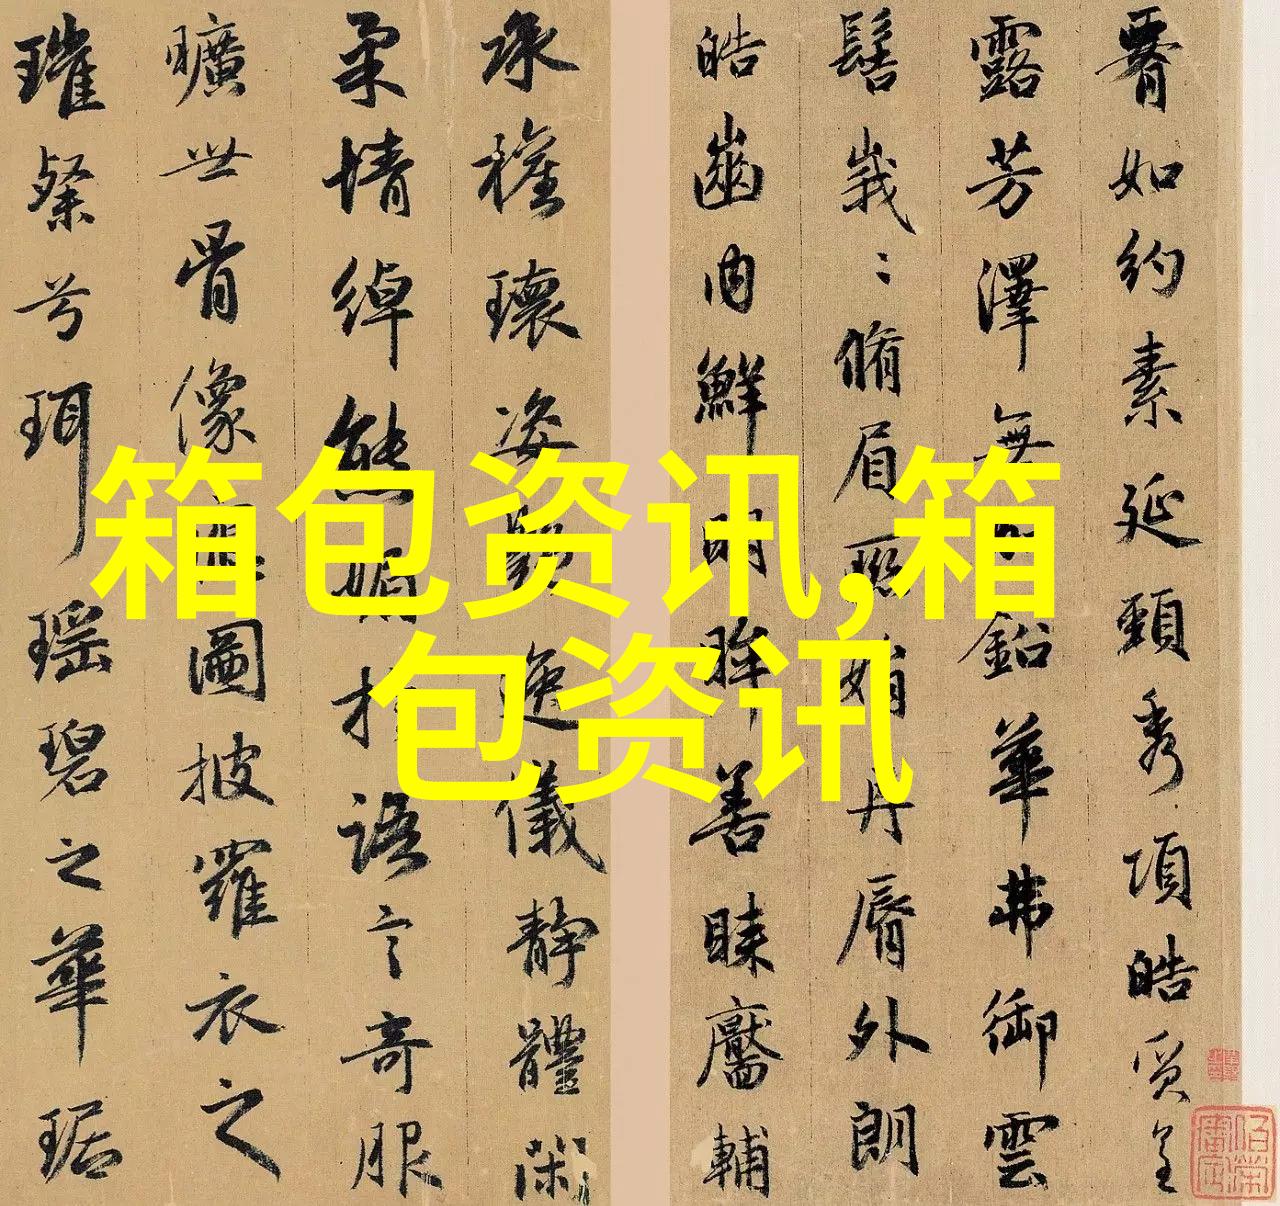 箱包资讯,箱
包资讯
腰如約素延頸秀項皓質呈
露芳澤無鉛華弗御雲
髻峩〻脩眉聯娟丹脣外朗
皓齒內鮮明眸善睞靨輔
承權瓌姿艷逸儀靜體閑
柔情綽態媚於語言奇服
曠世骨像應圖披羅衣之
璀粲兮珥瑤碧之華琚